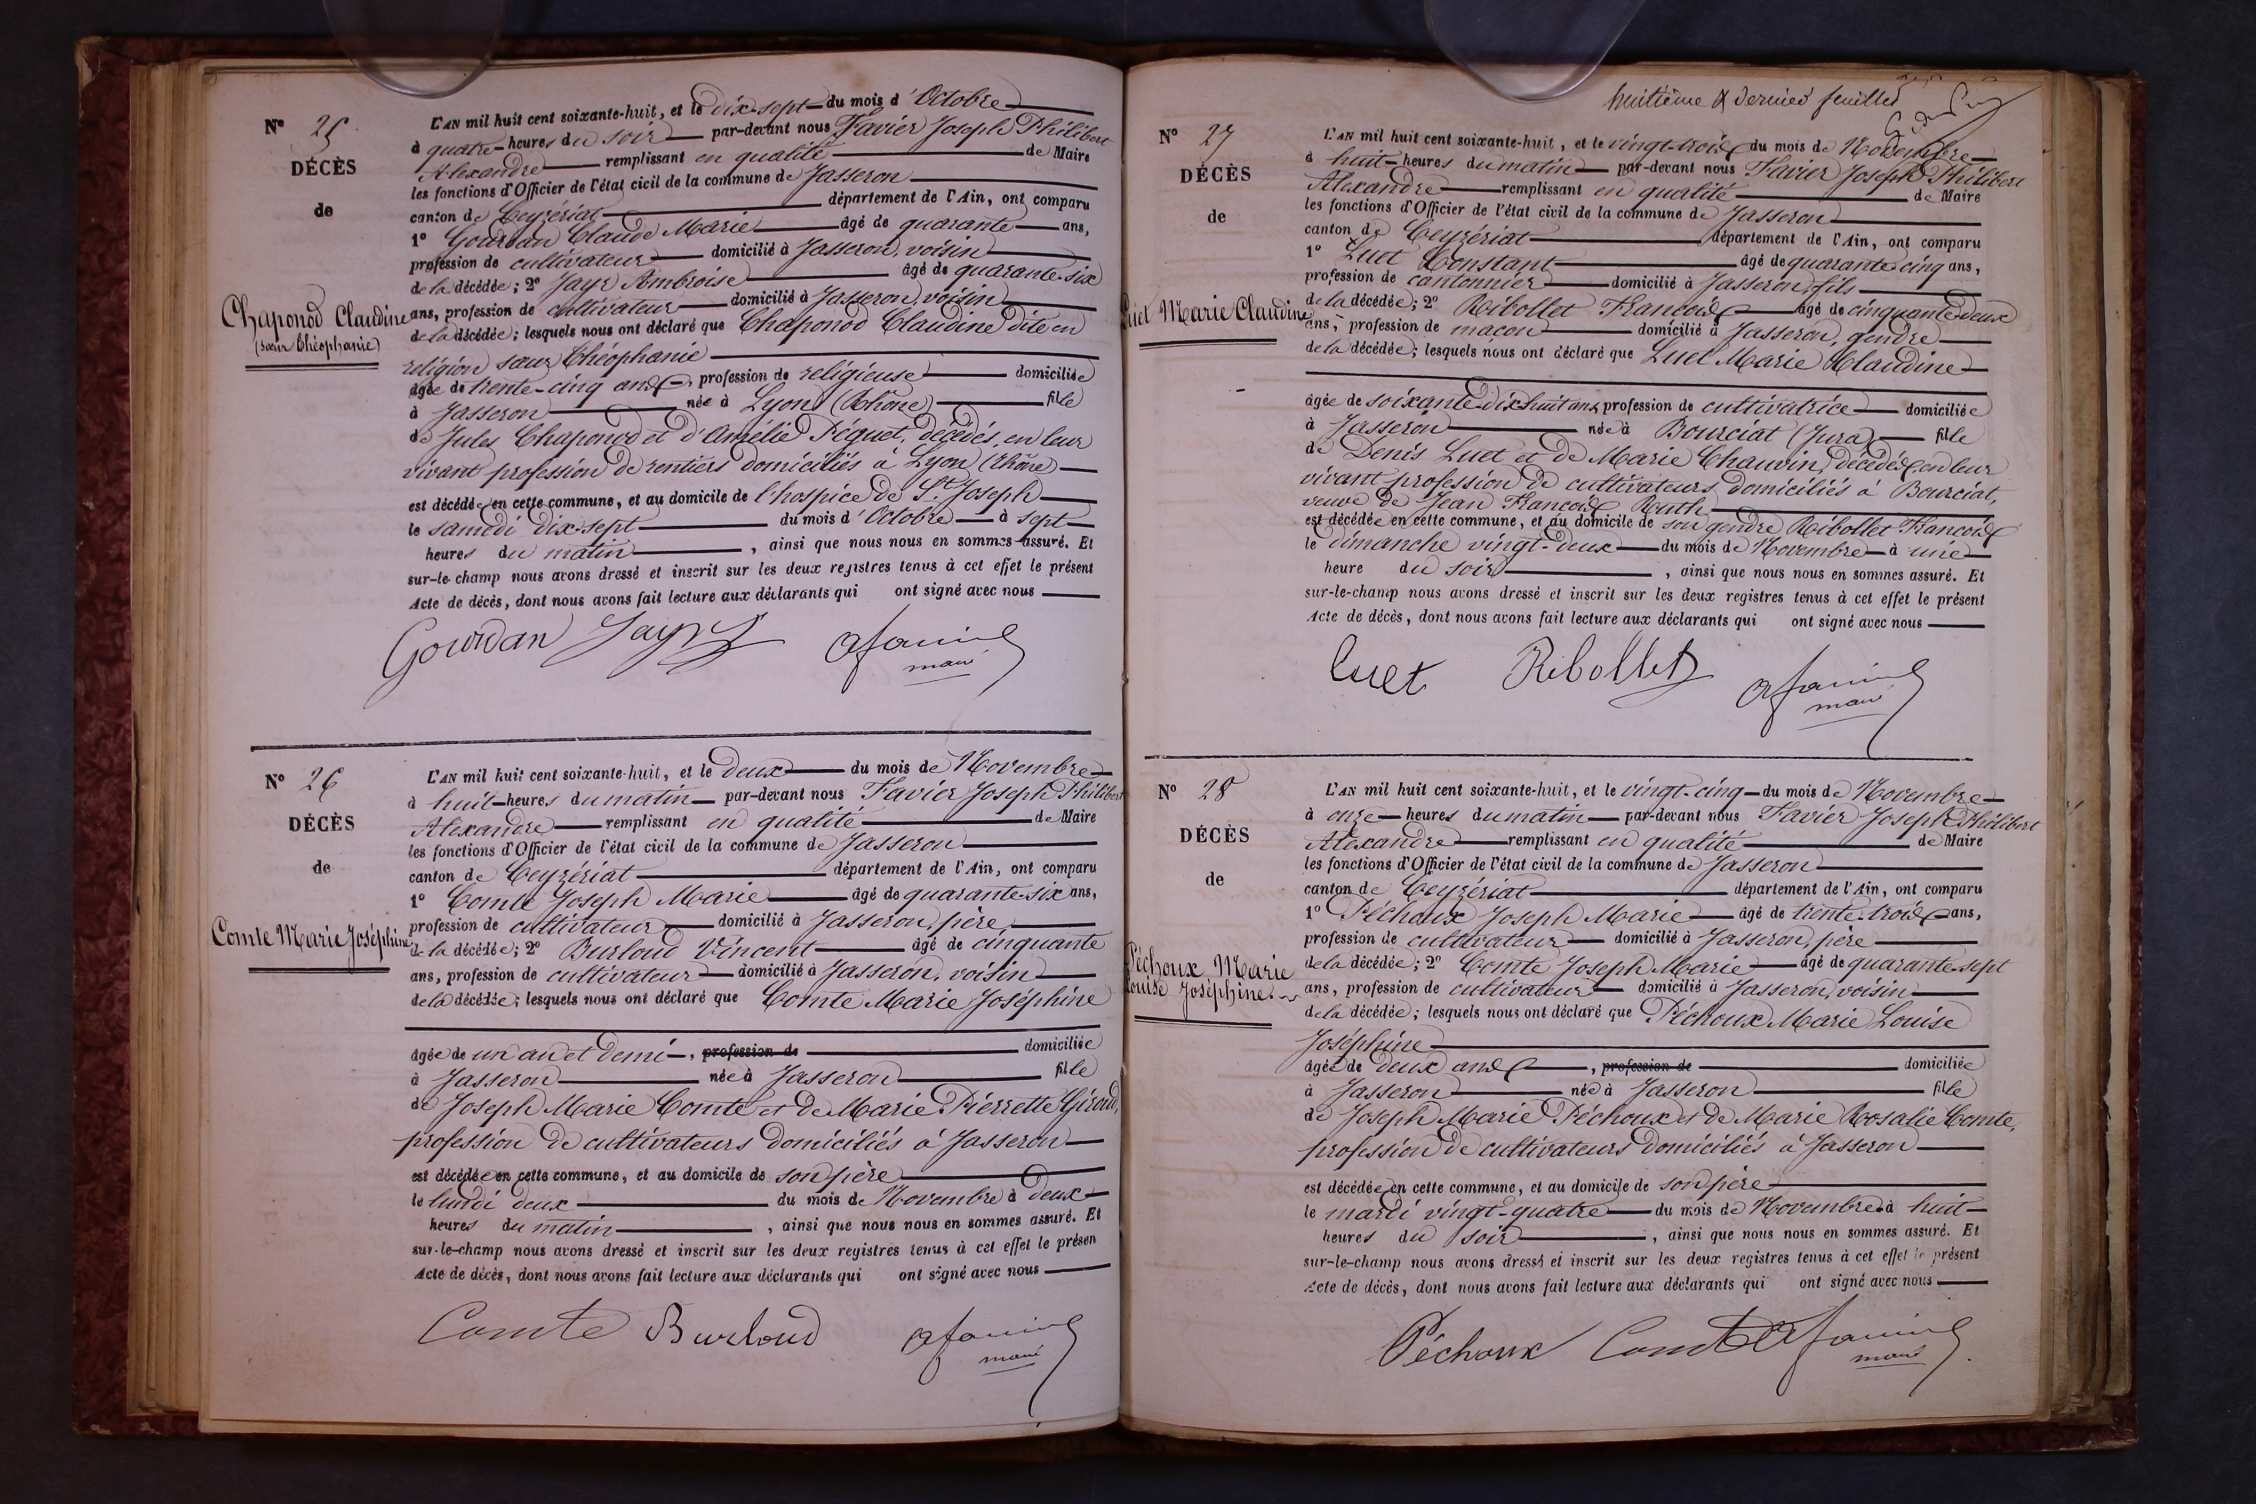 Nº 25
DÉCÈS
de
Chaponod Claudine
(sœur Théophanie)
L'AN mil huit cent soixante-huit, et le dix-sept du mois d'Octobre
à quatre heures du soir par-devant nous Favier Joseph Philibert
Alexandre remplissant en qualité de Maire
les fonctions d'Officier de l'état civil de la commune de Jasseron
canton de Ceyzériat département de l'Ain, ont comparu
1º Gourdan Claude Marie âgé de quarante ans,
profession de cultivateur domicilié à Jasseron, voisin
de la décédée; 2º Jayr Ambroise âgé de quarante-six
ans, profession de cultivateur domicilié à Jasseron, voisin
de la décédée; lesquels nous ont déclaré que Chaponod Claudine dite en
religion sœur Théophanie
âgée de trente-cinq ans, profession de religieuse domiciliée
à Jasseron née à Lyon (Rhône) fille
de Jules Chaponod et d'Amélie Péquet, décédés, en leur
vivant profession de rentiers domiciliés à Lyon (Rhône)
est décédée en cette commune, et au domicile de l'hospice de St. Joseph
le samedi dix-sept du mois d'Octobre à sept
heures du matin, ainsi que nous nous en sommes assuré. Et
sur-le-champ nous avons dressé et inscrit sur les deux registres tenus à cet effet le présent
Acte de décès, dont nous avons fait lecture aux déclarants qui ont signé avec nous
Gourdan Jayr afavier
maire
Nº 26
DÉCÈS
de
Comte Marie Joséphine
L'AN mil huit cent soixante-huit, et le deux du mois de Novembre
à huit heures du matin par-devant nous Favier Joseph Philibert
Alexandre remplissant en qualité de Maire
les fonctions d'Officier de l'état civil de la commune de Jasseron
canton de Ceyzériat département de l'Ain, ont comparu
1º Comte Joseph Marie âgé de quarante-six ans,
profession de cultivateur domicilié à Jasseron, père
de la décédée; 2º Burloud Vincent âgé de cinquante
ans, profession de cultivateur domicilié à Jasseron, voisin
de la décédée; lesquels nous ont déclaré que Comte Marie Joséphine
âgée de un an et demi, profession de domiciliée
à Jasseron née à Jasseron fille
de Joseph Marie Comte et de Marie Pierrette Giroud,
profession de cultivateurs domiciliés à Jasseron
est décédée en cette commune, et au domicile de son père
le lundi deux du mois de Novembre à deux
heures du matin, ainsi que nous nous en sommes assuré. Et
sur-le-champ nous avons dressé et inscrit sur les deux registres tenus à cet effet le présen
Acte de décès, dont nous avons fait lecture aux déclarants qui ont signé avec nous
Comte Burloud afavier
maire
huitième & dernier feuillet
Nº 27
DÉCÈS
de
Luet Marie Claudine
L'AN mil huit cent soixante-huit, et le vingt-trois du mois de Novembre
à huit heures du matin par-devant nous Favier Joseph Philibert
Alexandre remplissant en qualité de Maire
les fonctions d'Officier de l'état civil de la commune de Jasseron
canton de Ceyzériat département de l'Ain, ont comparu
1º Luet Constant âgé de quarante-cinq ans,
profession de cantonnier domicilié à Jasseron, fils
de la décédée; 2º Ribollet François âgé de cinquante-deux
ans, profession de maçon domicilié à Jasseron, gendre
de la décédée; lesquels nous ont déclaré que Luet Marie Claudine
âgée de soixante-dix-huit ans, profession de cultivatrice domiciliée
à Jasseron née à Bourciat (Jura) fille
de Denis Luet et de Marie Chauvin, décédés, en leur
vivant profession de cultivateurs domiciliés à Bourciat,
veuve de Jean François Ruth
est décédée en cette commune, et au domicile de son gendre Ribollet François
le dimanche vingt-deux du mois de Novembre à une
heure du soir, ainsi que nous nous en sommes assuré. Et
sur-le-champ nous avons dressé et inscrit sur les deux registres tenus à cet effet le présent
Acte de décès, dont nous avons fait lecture aux déclarants qui ont signé avec nous
Luet Ribollet afavier
maire
Nº 28
DÉCÈS
de
Péchoux Marie
Louise Joséphine.
L'AN mil huit cent soixante-huit, et le vingt-cinq du mois de Novembre
à onze heures du matin par-devant nous Favier Joseph Philibert
Alexandre remplissant en qualité de Maire
les fonctions d'Officier de l'état civil de la commune de Jasseron
canton de Ceyzériat département de l'Ain, ont comparu
1º Péchoux Joseph Marie âgé de trente-trois ans,
profession de cultivateur domicilié à Jasseron, père
de la décédée; 2º Comte Joseph Marie âgé de quarante-sept
ans, profession de cultivateur domicilié à Jasseron, voisin
de la décédée; lesquels nous ont déclaré que Péchoux Marie Louise
Joséphine
âgée de deux ans, profession de domiciliée
à Jasseron née à Jasseron fille
de Joseph Marie Péchoux et de Marie Rosalie Comte,
profession de cultivateurs domiciliés à Jasseron
est décédée en cette commune, et au domicile de son père
le mardi vingt-quatre du mois de Novembre à huit
heures du soir, ainsi que nous nous en sommes assuré. Et
sur-le-champ nous avons dressé et inscrit sur les deux registres tenus à cet effet le présent
Acte de décès, dont nous avons fait lecture aux déclarants qui ont signé avec nous
Péchoux Comte afavier
maire